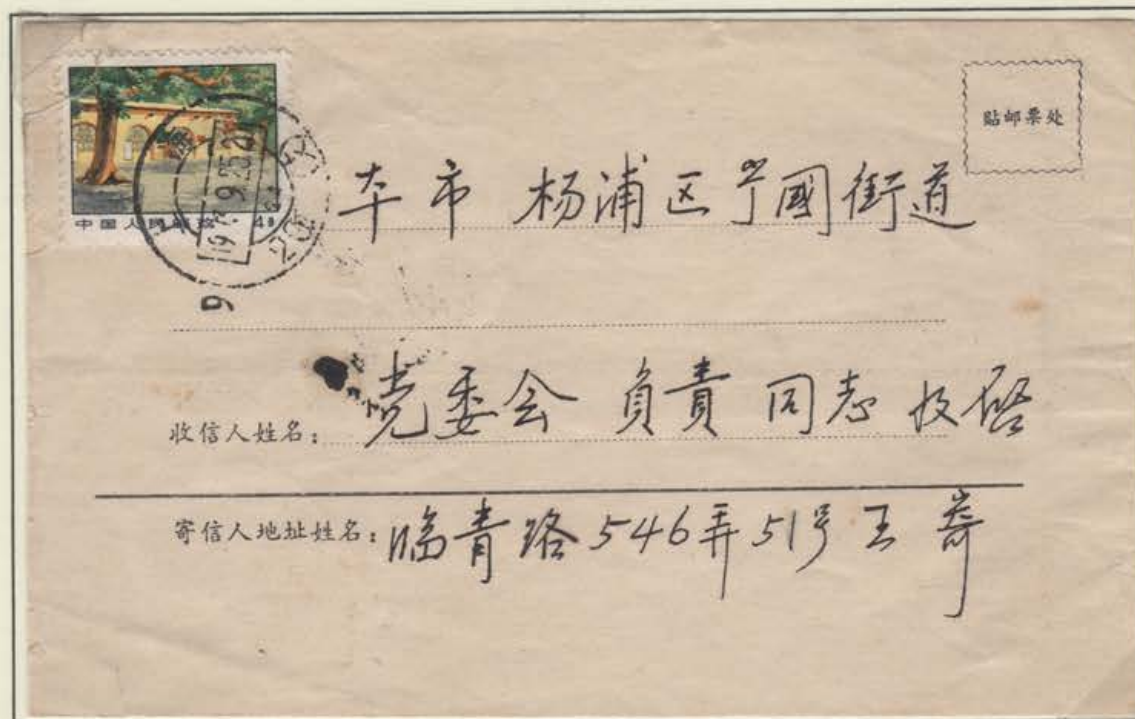 贴邮票处
中国人民邮政 4分
本市 杨浦区宁國街道
收信人姓名：党委会 負責 同志 收启
寄信人地址姓名：临青路546弄51号王寄